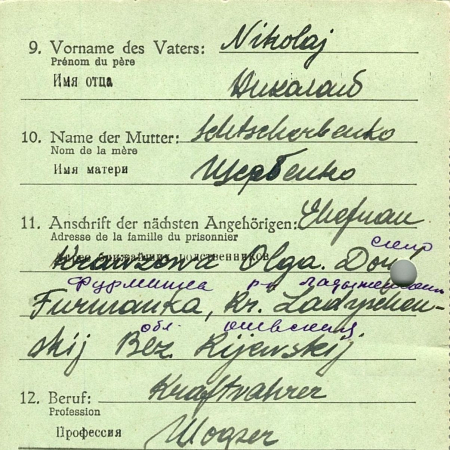 9. Vorname des Vaters: Nikolaj
Prénom du père
Имя отца
Николай
10. Name der Mutter: Schtscherbenko
Nom de la mère
Имя матери Щербенко
11. Anschrift der nächsten Angehörigen: Ehefrau
Adresse de la famille du prisonnier
Адрес ближайших родственников
Krawzowa Olga. Dorf
Фурманка р-н
Furmanka, Kr. Ladyschen-
обл.
skij Bez. Kijewskij
12. Beruf: Kraftfahrer
Profession
Профессия Шофер